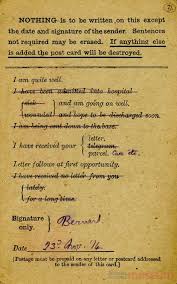 NOTHING is to be written on this except
the date and signature of the sender. Sentences
not required may be erased. If anything else
is added the post card will be destroyed.
I am quite well.
I have been admitted into hospital
sick and am going on well.
wounded and hope to be discharged soon.
I am being sent down to the base.
letter,
I have received your telegram,
parcel.
Letter follows at first opportunity.
I have received no letter from you
lately.
for a long time.
Signature
only. Bernard
Date 23rd Nov. 16
(Postage must be prepaid on any letter or postcard
addressed to the sender of this card.)